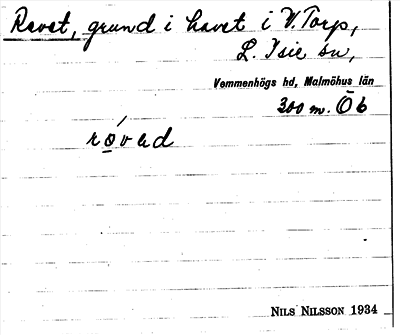 Revet, grund i havet i V. Torp,
L. Isie sn,
Vemmenhögs hd, Malmöhus län
300 m. Ö b
róvəd
NILS NILSSON 1934